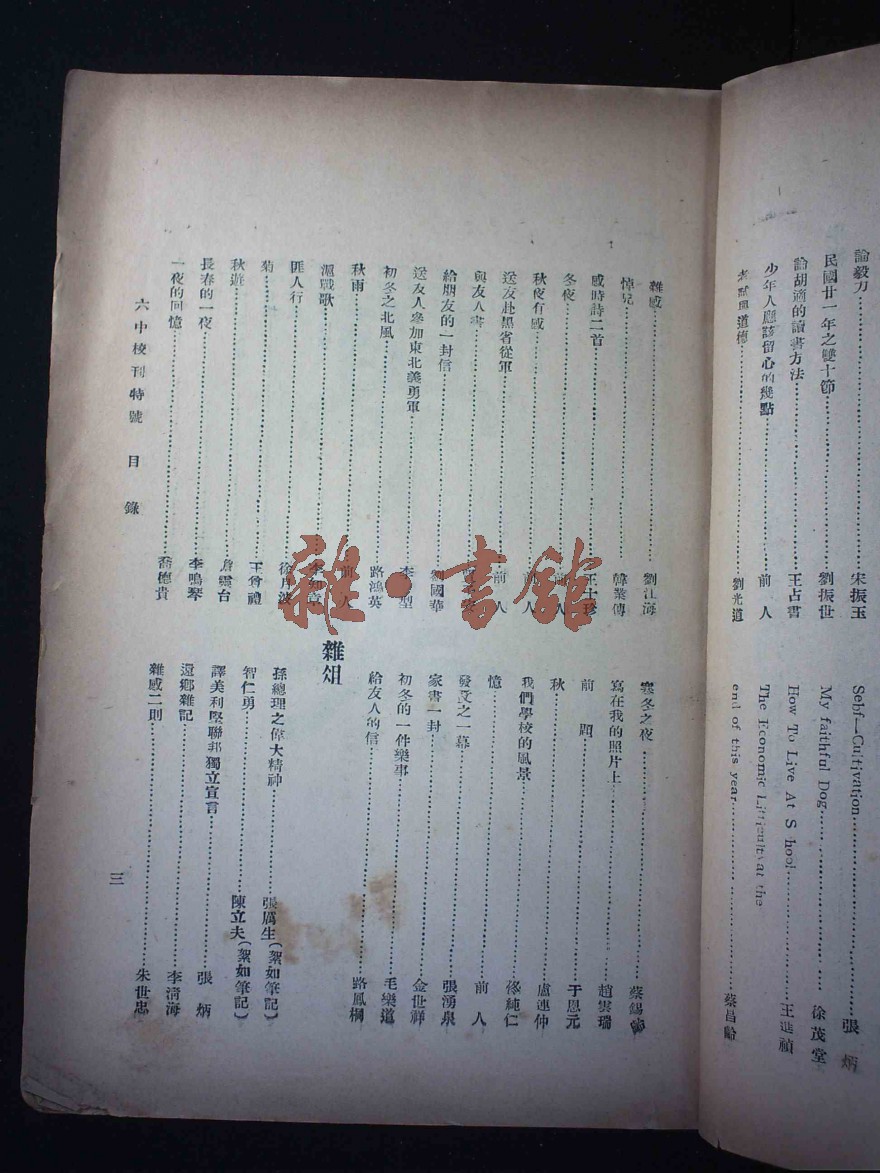 論毅力……宋振玉
民國廿一年之雙十節……劉振世
論胡適的讀書方法……王占書
少年人應該留心的幾點……前 人
道德……劉光道
Self—Cultivation……張 炳
My faithful Dog……徐茂堂
How To Live At S hool……王進禎
The Economic at the
end of this year……蔡昌齡
雜感……劉江海
悼兄……韓業傳
感時詩二首……王士珍
冬夜……前 人
秋夜有感……前 人
送友赴黑省從軍……前 人
與友人書……
給朋友的一封信……劉國華
送友人參加東北義勇軍……李 型
初冬之北風……路鴻英
秋雨……前 人
滬戰歌……李如章
匪人行……徐月波
菊……王曾禮
秋遊……詹靈台
長春的一夜……李鳴琴
一夜的回憶……喬德貴
寒冬之夜……蔡錫
寫在我的照片上……趙雲瑞
前 題……于恩元
秋……盧連仲
我們學校的風景……修純仁
憶……前 人
發瘧之一幕……張湧泉
家書一封……金世祥
初冬的一件樂事……毛樂道
給友人的信……路鳳桐
雜俎
孫總理之偉大精神……張厲生(絮如筆記)
智仁勇……陳立夫(絮如筆記)
譯美利堅聯邦獨立宣言……張 炳
還鄉雜記……李清海
雜感二則……朱世忠
六中校刊特號 目 錄
三
雜·書館